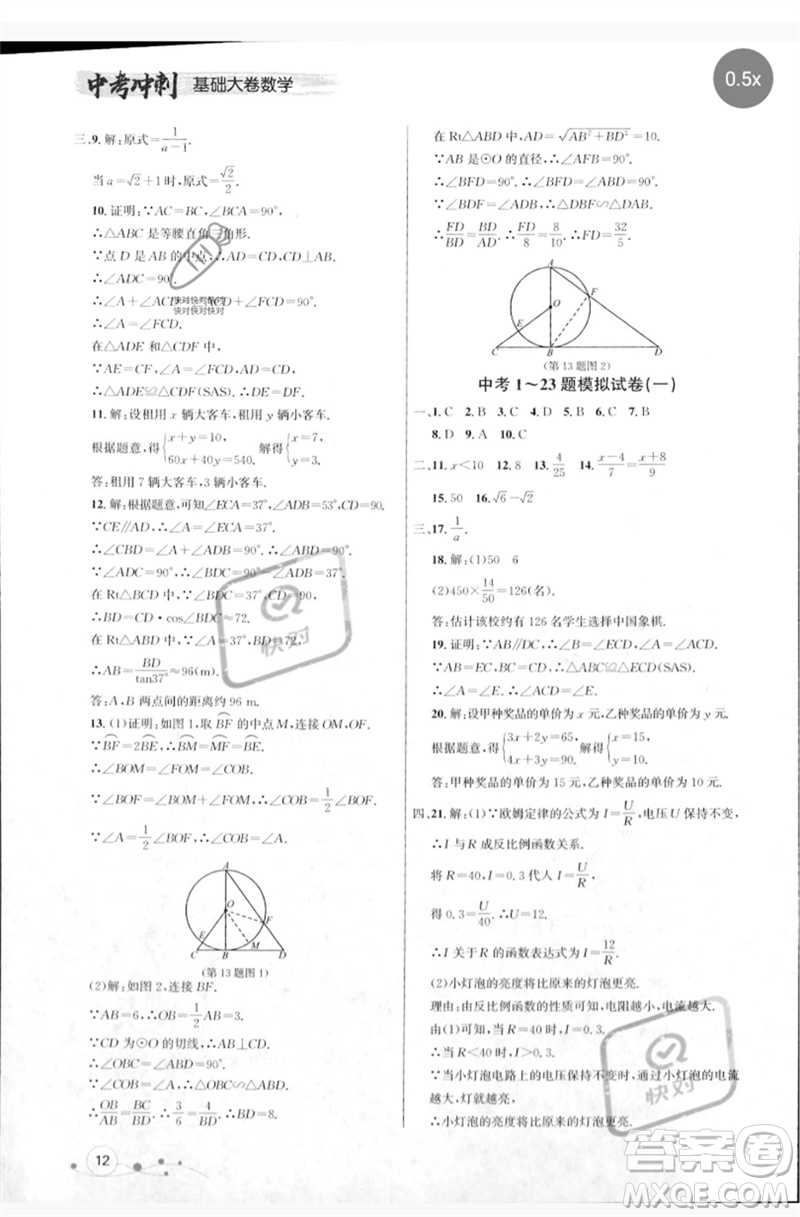 中考冲刺 基础大卷数学
0.5x
三、9. 解:原式=1/(a-1).
当a=√2+1时,原式=√2/2.
10. 证明:∵AC=BC,∠BCA=90°,
∴△ABC是等腰直角三角形.
∵点D是AB的中点,∴CD⊥AB.
∴∠ADC=90°.
∴∠A+∠ACD=∠ACD+∠FCD=90°.
∴∠A=∠FCD.
在△ADE和△CDF中,
∵AE=CF,
∴△ADE≌△CDF(SAS).
11. 解:设租用x辆大客车,租用y辆小客车.
根据题意,得{x+y=10, 60x+40y=540. 解得{x=7, y=3.
答:租用7辆大客车,3辆小客车.
12. 解:根据题意,可知∠ECA=37°,∠ADB=53°,CD=90.
∵CE∥AD,∴∠A=∠ECA=37°.
∴∠CBD=∠A+∠ADB=90°.
∴∠ABD=90°.
在Rt△BCD中,
∴BD=CD·cos∠BCD≈72.
在Rt△ABD中,∵∠A=37°,BD=72,
∴AB=BD/tan37°≈96(m).
答:A,B两点间的距离约96 m.
13. (1)证明:如图1,取BF的中点M,连接OM,OF.
∵BF=2BE,∴BM=MF=BE.
∴∠BOM=∠FOM=∠COB.
∵∠BOF=∠BOF,∴∠COB=1/2∠BOF.
∵∠A=1/2∠BOF,∴∠COB=∠A.
A
O
F
E
M
C
B
D
(第13题图1)
(2)解:如图2,连接BF.
∵AB=6,∴OB=1/2AB=3.
∵CD为⊙O的切线,
∴∠OBC=∠ABD=90°.
∵∠COB=∠A,∴△OBC∽△ABD.
∴OB/AB=BC/BD.∴3/6=4/BD.∴BD=8.
12
在Rt△ABD中,AD=√(AB²+BD²)=10.
∵AB是⊙O的直径,∴∠AFB=90°.
∴∠BFD=90°.∴∠BFD=∠ABD.
∵∠BDF=∠BDF,∴△DBF∽△DAB.
∴FD/BD=BD/AD.∴FD/8=8/10.∴FD=32/5.
A
F
O
E
C
B
D
(第13题图2)
中考1~23题模拟试卷(一)
一、1. C 2. B 3. C 4. D 5. C 6. C 7. B
8. D 9. A 10. C
二、11. x<10 12. 8 13. 4/25 14. (x-4)/7=(x+8)/9
15. 50 16. √6-√2
三、17. 1/a.
18. 解:(1)50 6
(2)450×14/50=126(名).
答:估计该校约有126名学生选择中国象棋.
19. 证明:∵AB∥DC,∴∠A=∠CDE.
∵AB=DC,AD=DE,∴△ABD≌△DCE(SAS).
∴∠ADB=∠E.
20. 解:设甲种奖品的单价为x元,乙种奖品的单价为y元.
根据题意,得{3x+2y=65, 4x+3y=90. 解得{x=15, y=10.
答:甲种奖品的单价为15元,乙种奖品的单价为10元.
四、21. 解:(1)∵欧姆定律的公式为I=U/R,电压U保持不变,
∴I与R成反比例函数关系.
将R=40,I=0.3代人I=U/R,
得0.3=U/40.∴U=12.
∴I关于R的函数表达式为I=12/R.
(2)小灯泡的亮度将比原来的灯泡更亮.
理由:由反比例函数的性质可知,电阻越小,电流越大.
由(1)可知,当R=40时,I=0.3.
∴当R<40时,I>0.3.
∵当小灯泡电路上的电压保持不变时,通过的电流
越大,灯越亮,
∴小灯泡的亮度将比原来的灯泡更亮.
快对
快对
答案卷
MXQE.COM